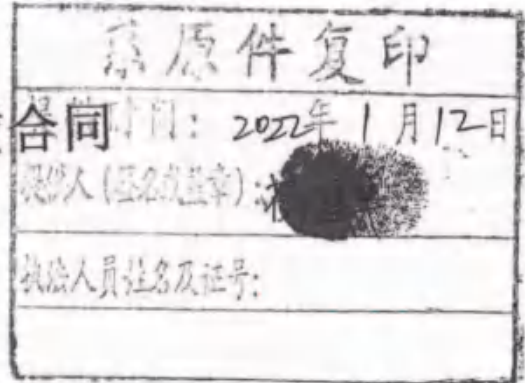 原件复印
合同 时间：2022年1月12日
提供人（签名或盖章）：
执法人员姓名及证号：